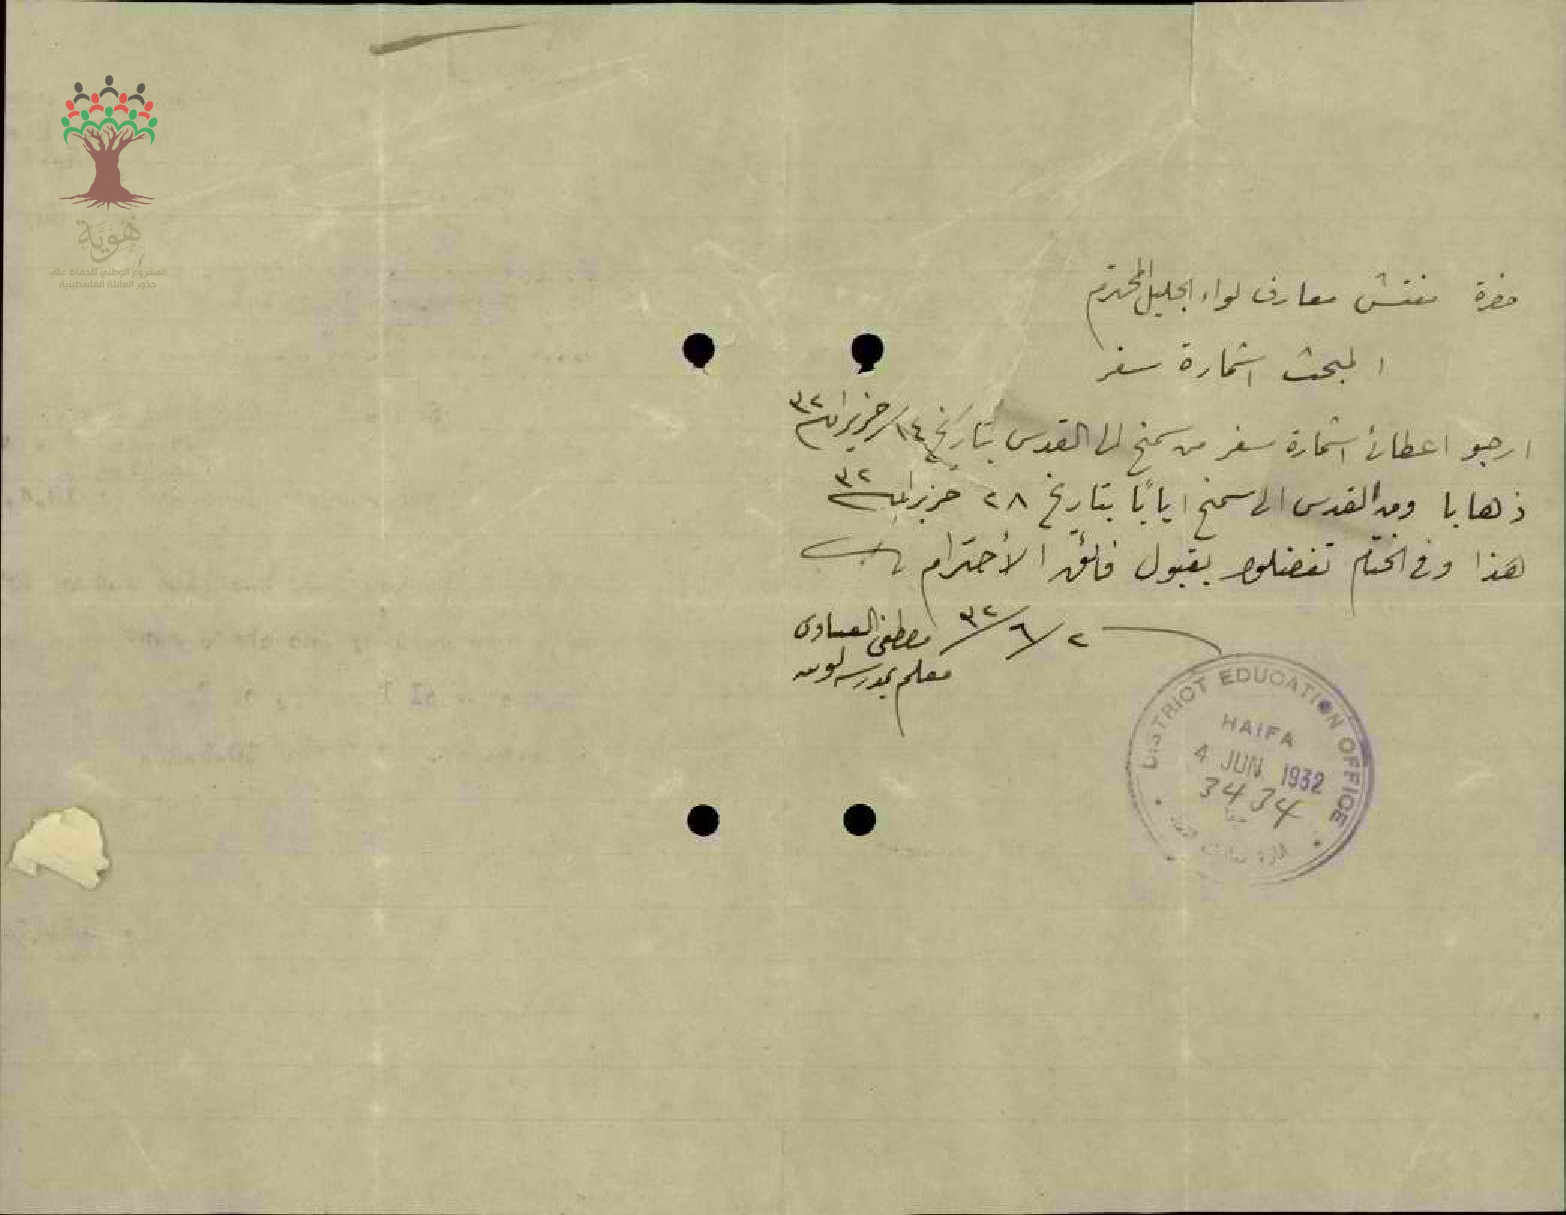 هوية
المشروع الوطني للحفاظ على
جذور العائلة الفلسطينية
حضرة مفتش معارف لواء الجليل المحترم
المبحث استمارة سفر
ارجو اعطائي استمارة سفر من سمخ الى القدس بتاريخ ١٤ حزيران سنة ٣٢
ذهابا ومن القدس الى سمخ ايابًا بتاريخ ٢٨ حزيران سنة ٣٢
هذا وفي الختام تفضلوا بقبول فائق الأحترام
٢/٦/٣٢
مصطفى
معلم بمدرسة
DISTRICT EDUCATION OFFICE
HAIFA
4 JUN 1932
3434
حيفا